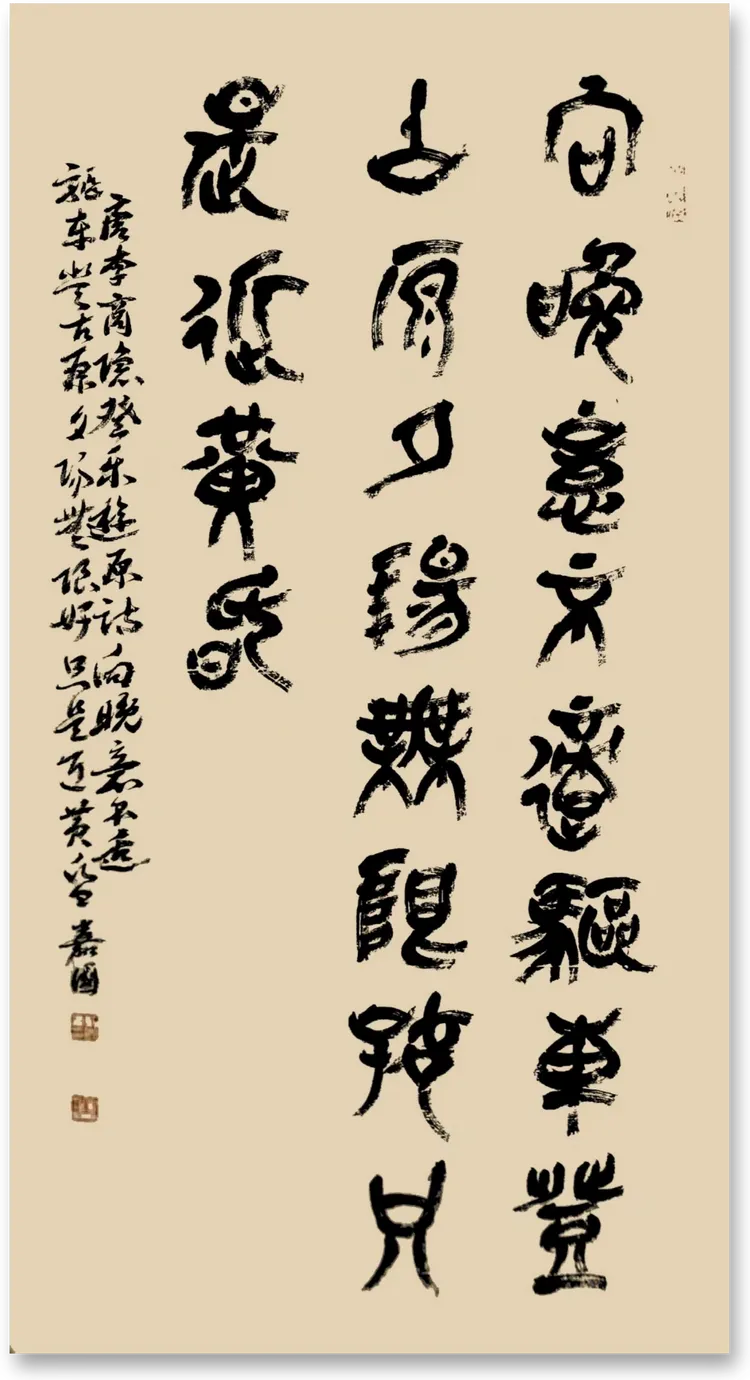 向晚意不適驅車登
古原夕陽無限好只
是近黄昏
唐李商隐登乐遊原诗向晚意不適
驱车登古原夕阳無限好只是近黄昏 嘉國